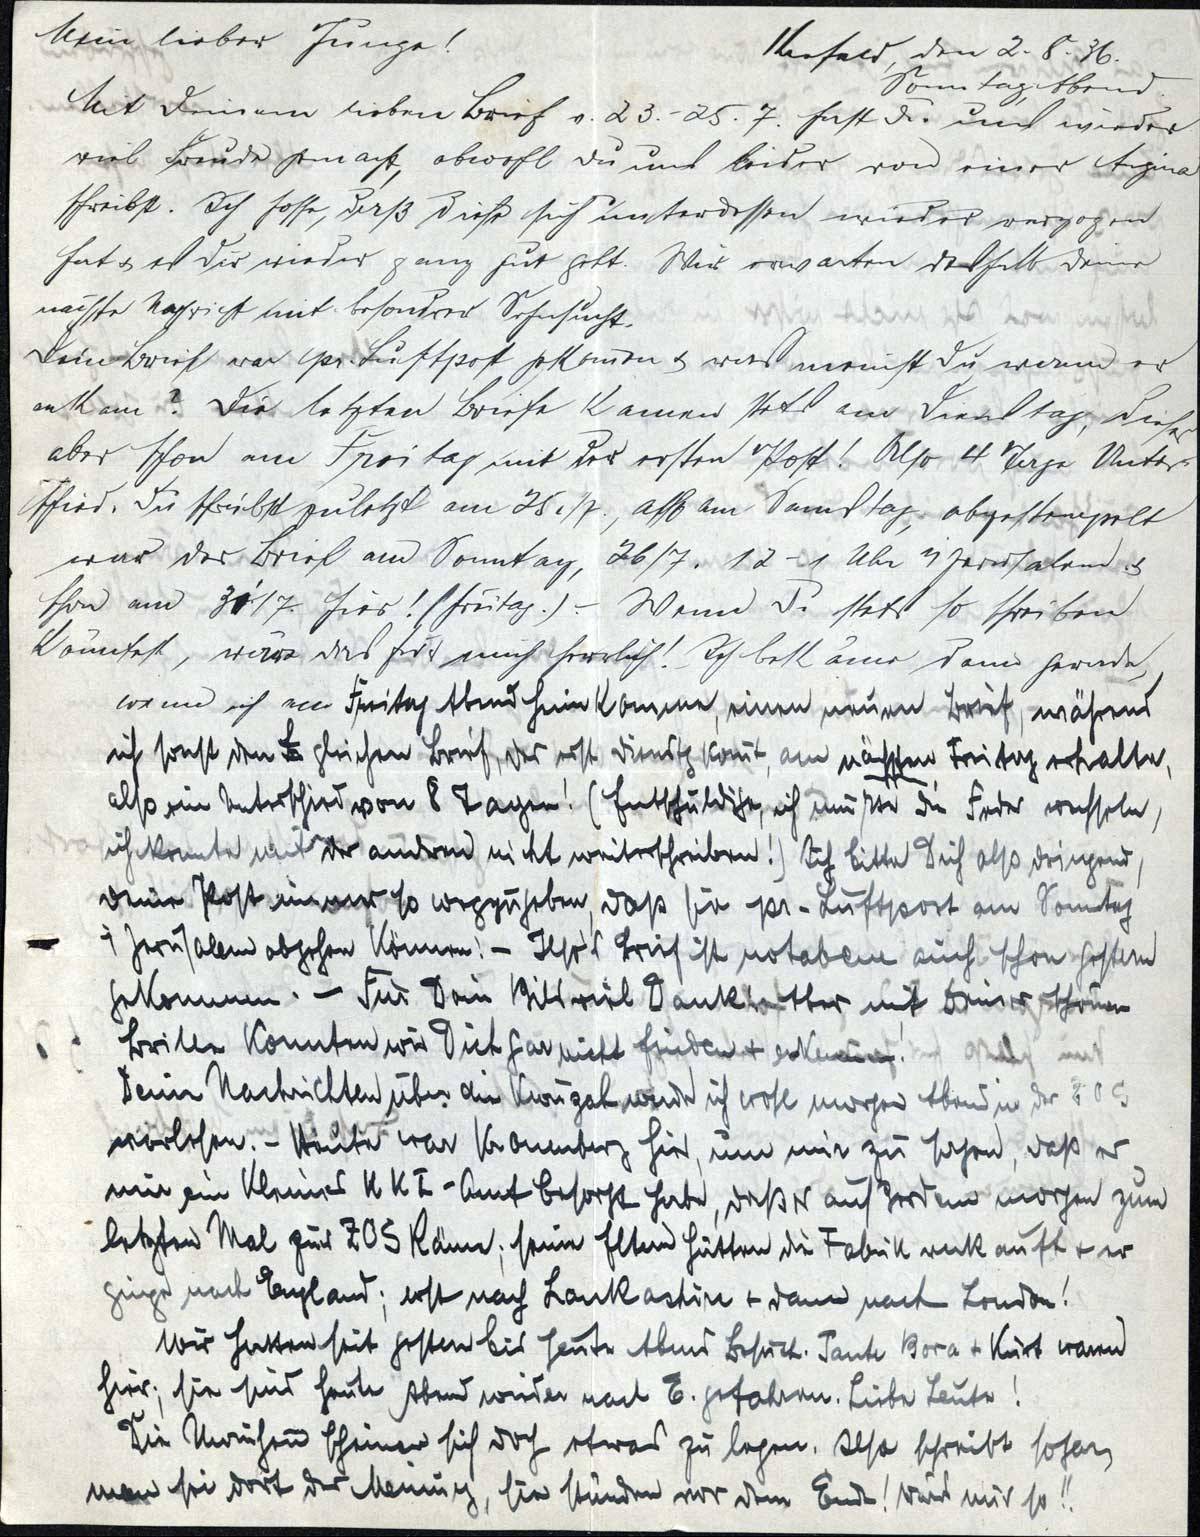 Mein lieber Junge!
den 2.8.36.
Sonntag Abend.
Mit Deinem lieben Brief v. 23.-25.7. hast Du uns wieder
viel Freude gemacht, obwohl Du uns leider von einer Angina
schreibst. Ich hoffe, daß diese sich unterdessen wieder verzogen
hat & es Dir wieder ganz gut geht. Wir erwarten deshalb Deine
nächste Nachricht mit besondrer Sehnsucht.
Dein Brief war pr. Luftpost gekommen & was meinst Du wann er
ankam? Die letzten Briefe kamen stets am Dienstag, dieser
aber schon am Freitag mit der ersten Post! Also 4 Tage Unter-
schied. Du schriebst zuletzt am 25./7., also am Samstag, abgestempelt
war der Brief am Sonntag, 26/7. 12-1 Uhr i/Jerusalem &
schon am 31/7 hier! (Freitag.) - Wenn Du stets so schreiben
könntest, wäre das für mich herrlich! Ich bekäme dann gerade,
wenn ich am Freitag Abend heimkomme, einen neuen Brief, während
ich sonst den gleichen Brief, der erst Dienstg kommt, am nächsten Freitag erhalte,
also ein Unterschied von 8 Tagen! (Entschuldige, ich mußte die Feder wechseln,
ich konnte mit der andren nicht weiterschreiben!) Ich bitte Dich also dringend,
Deine Post immer so wegzugeben, daß sie pr. Luftpost am Sonntag
i/Jerusalem abgehen können! - Ilse's Brief ist notabene auch schon gestern
gekommen. - Für Dein Bild viel Dank! Aber mit Deiner schönen
Brille konnten wir Dich gar nicht finden + erkennen!
Deine Nachrichten über die Kwuzah werde ich wohl morgen Abend in der ZOG
vorlesen. - Heute war Kronenberg hier, um mir zu sagen, daß er
mir ein kleines KKL-Amt besorgt habe, daß er außerdem morgen zum
letzten Mal zur ZOG käme; seine Eltern hätten die Fabrik verkauft + er
ginge nach England; erst nach Lankashire + dann nach London!
Wir hatten seit gestern bis heute Abend Besuch. Tante Dora + Kurt waren
hier; sie sind heute Abend wieder nach E. gefahren. Liebe Leute!
Die Unruhen scheinen sich doch etwas zu legen. Ilse schreibt sogar,
man sei dort der Meinung, sie stünden vor dem Ende! Wär's nur so!!